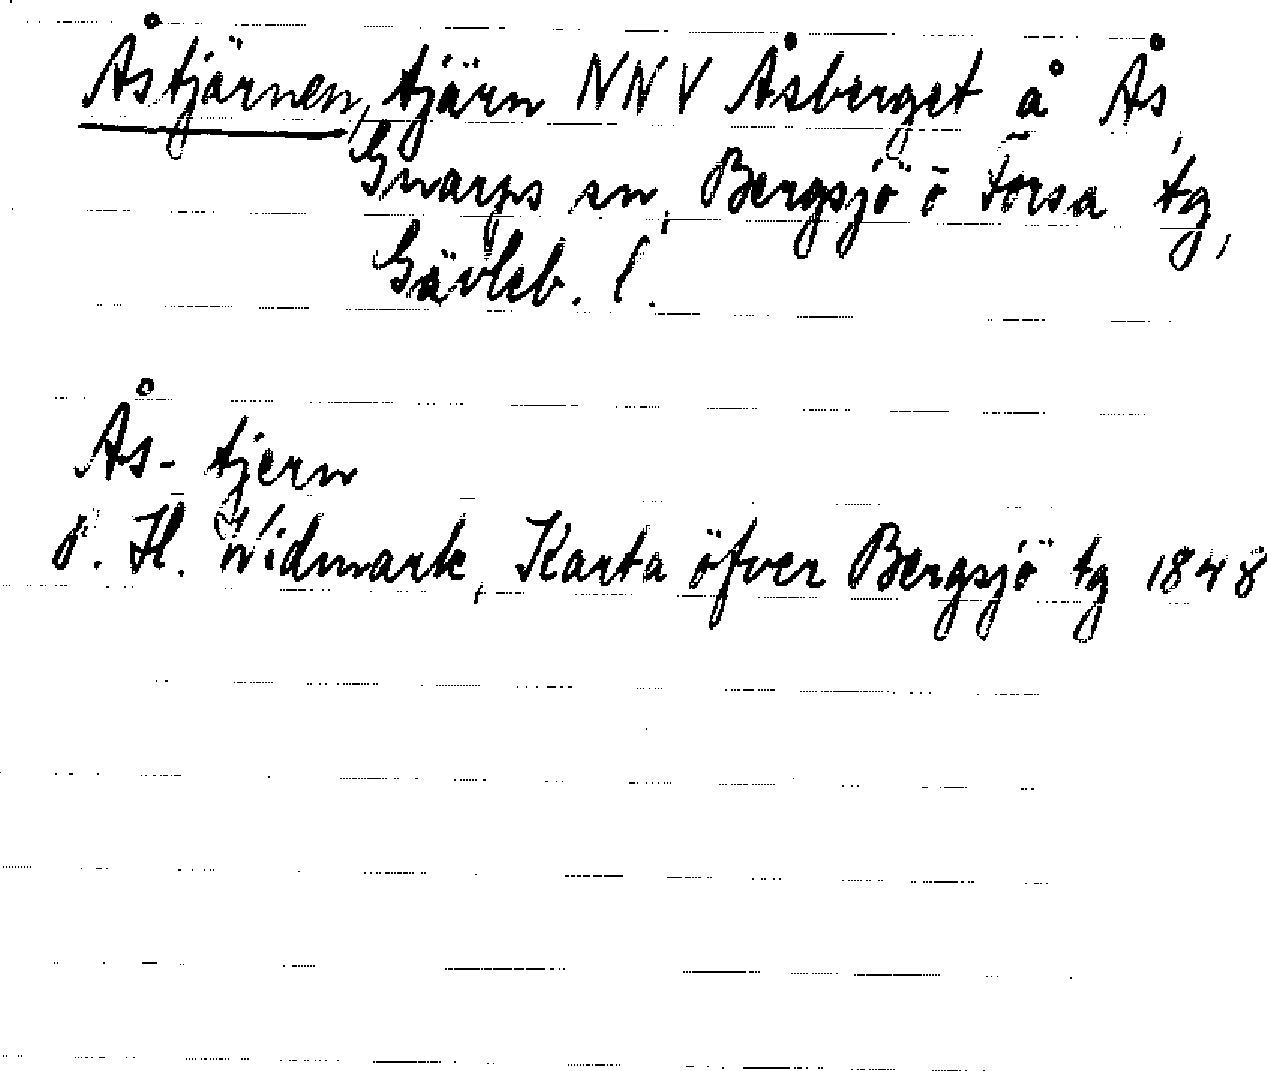 Åstjärnen, tjärn NNV Åsberget å Ås,
Gnarps sn, Bergsjö o Forsa tg,
Gävleb. l.
Ås- tjern
P. H. Widmark, Karta öfver Bergsjö tg 1848